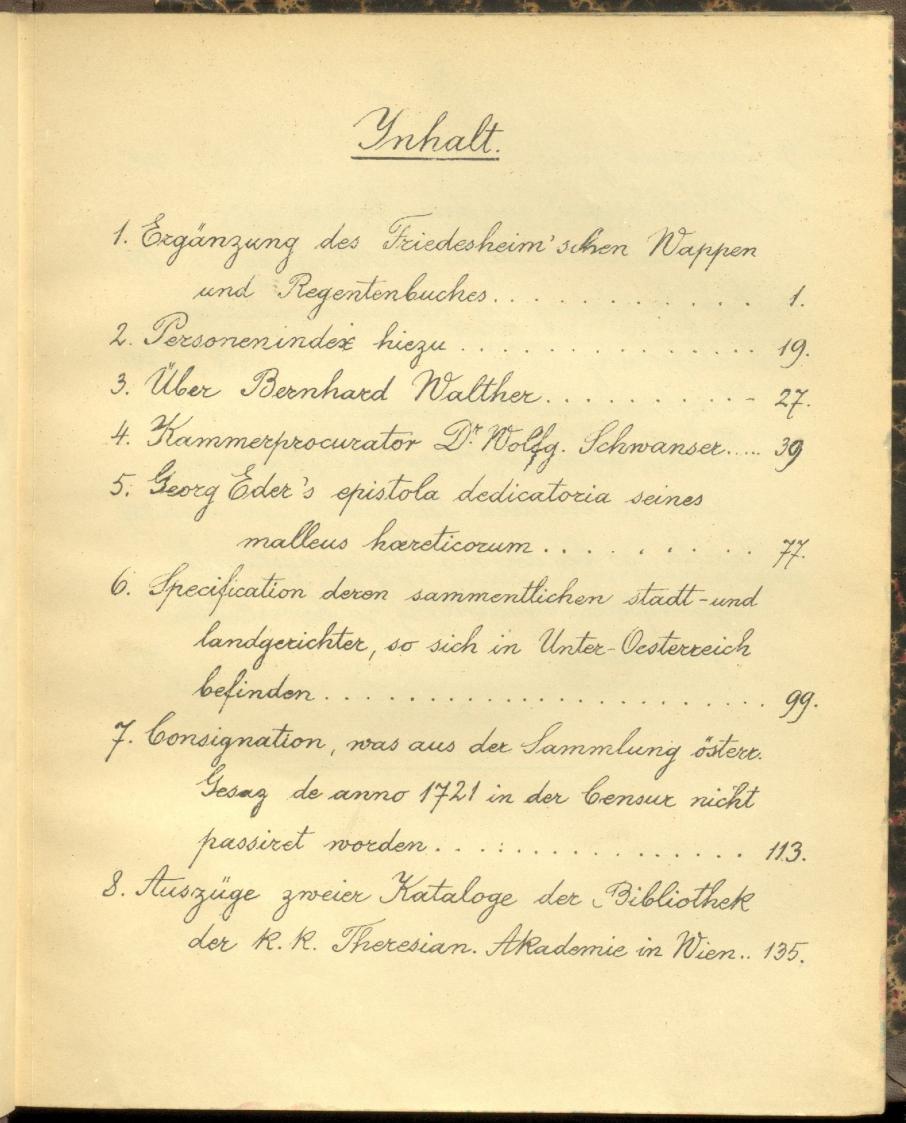 Ynhalt.
1. Ergänzung des Friedesheim'schen Wappen
und Regentenbuches............ 1.
2. Personenindex hiezu.............. 19.
3. Über Bernhard Walther.......... - 27.
4. Kammerprocurator Dr Wolfg. Schwanser..... 39
5. Georg Eder's epistola dedicatoria seines
malleus hæreticorum.......... 77.
6. Specification deren sammentlichen stadt-und
landgerichter, so sich in Unter-Oesterreich
befinden..................... 99.
7. Consignation, was aus der Sammlung österr.
Gesaz de anno 1721 in der Censur nicht
passiret worden............... 113.
8. Auszüge zweier Kataloge der Bibliothek
der k. k. Theresian. Akademie in Wien.. 135.